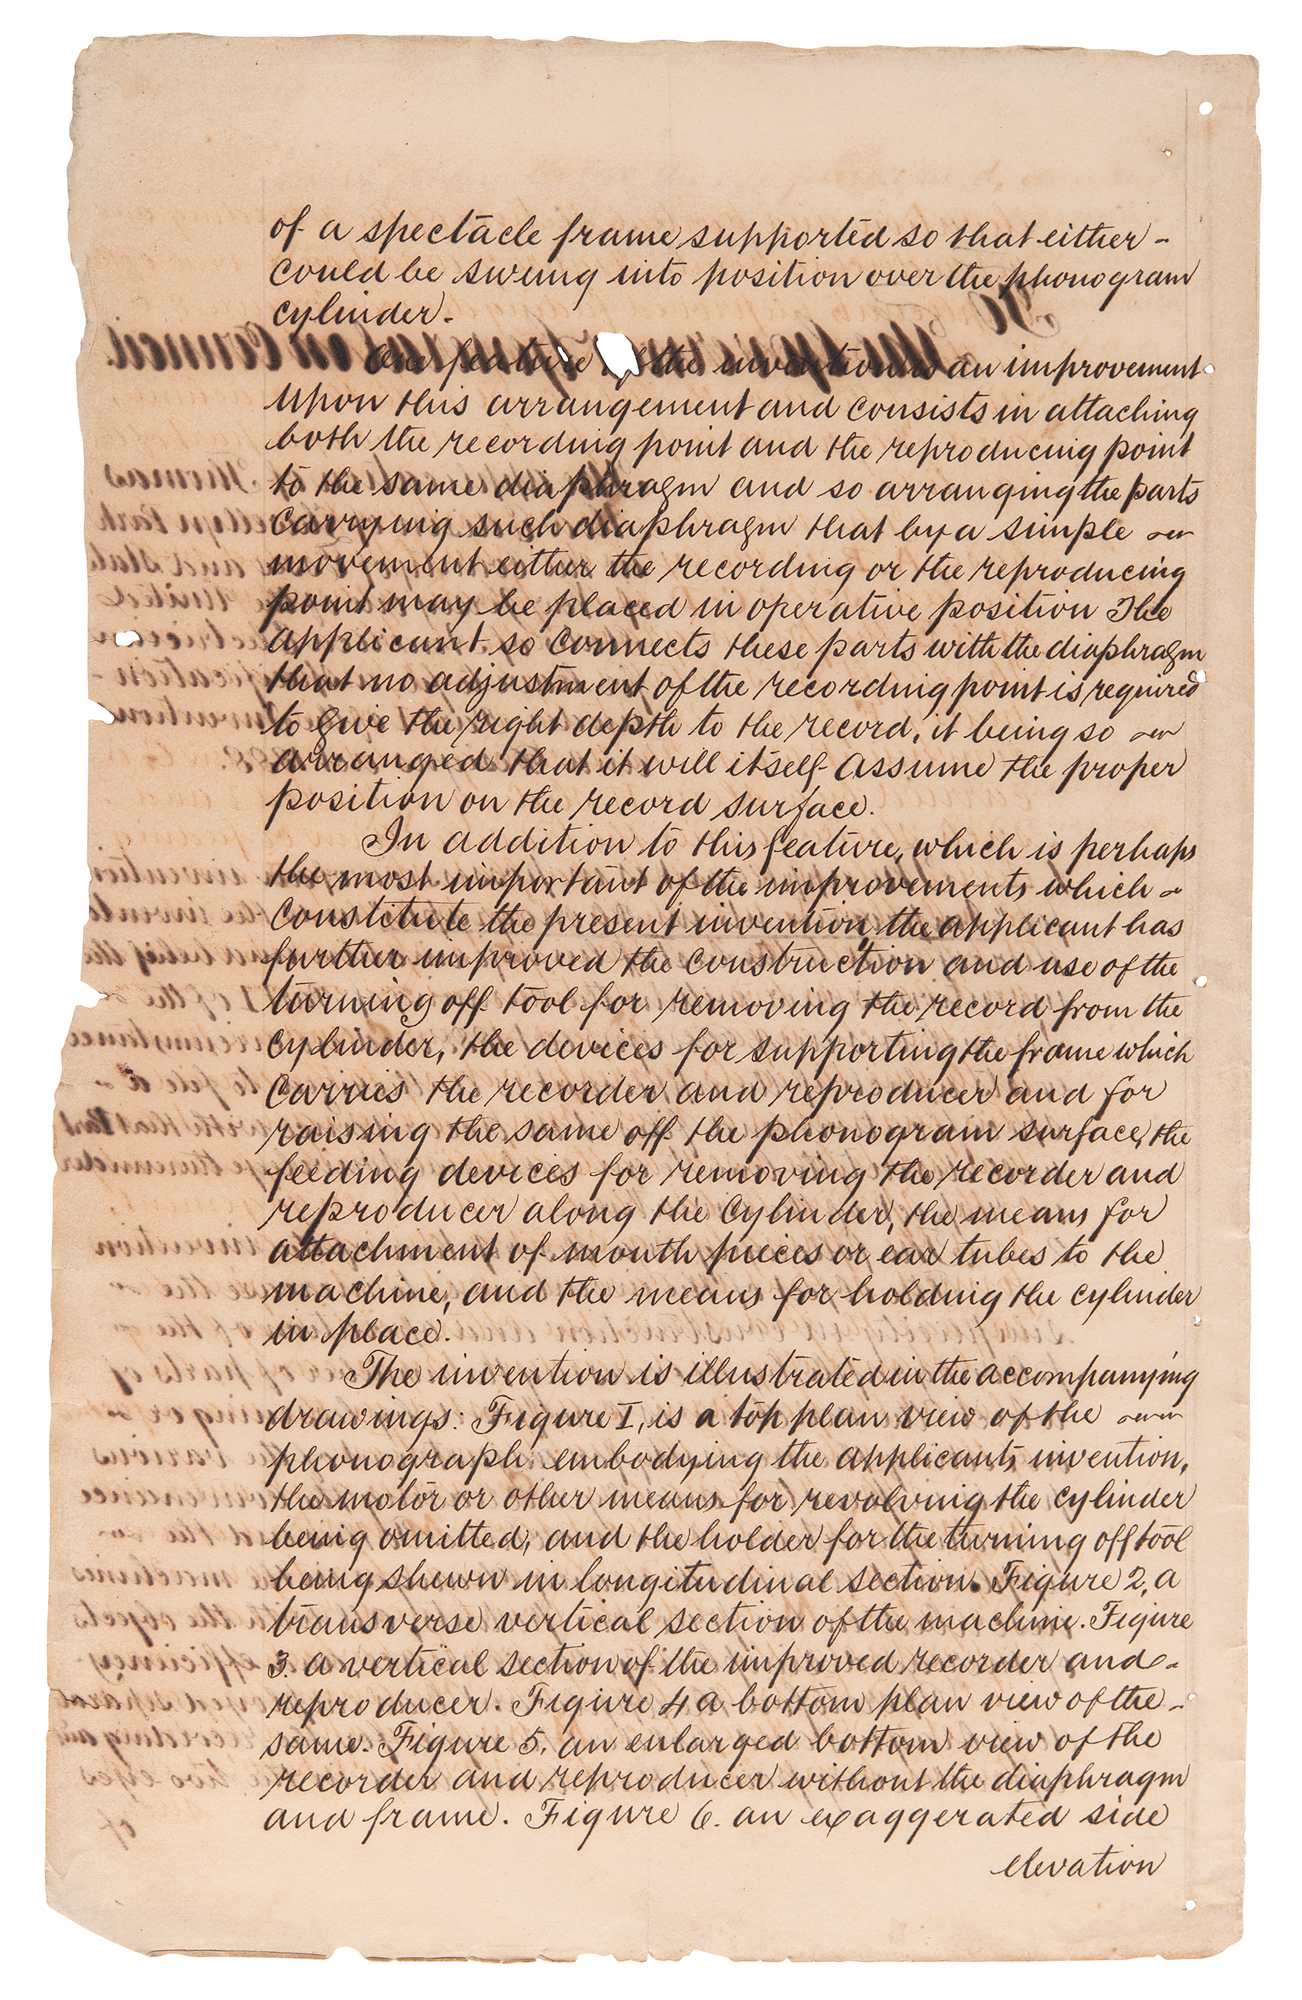 of a spectacle frame supported so that either -
could be swung into position over the phonogram
cylinder.
One feature of the invention is an improvement
upon this arrangement and consists in attaching
both the recording point and the reproducing point
to the same diaphragm and so arranging the parts
carrying such diaphragm that by a simple
movement either the recording or the reproducing
point may be placed in operative position The
applicant so connects these parts with the diaphragm
that no adjustment of the recording point is required
to give the right depth to the record, it being so
arranged that it will itself assume the proper
position on the record surface.
In addition to this feature, which is perhaps
the most important of the improvements which
constitute the present invention the applicant has
further improved the construction and use of the
turning off tool for removing the record from the
cylinder, the devices for supporting the frame which
carries the recorder and reproducer and for
raising the same off the phonogram surface, the
feeding devices for removing the recorder and
reproducer along the cylinder, the means for
attachment of mouth pieces or ear tubes to the
machine, and the means for holding the cylinder
in place.
The invention is illustrated in the accompanying
drawings: Figure I, is a top plan view of the
phonograph embodying the applicants invention,
the motor or other means for revolving the cylinder
being omitted, and the holder for the turning off tool
being shewn in longitudinal section. Figure 2, a
transverse vertical section of the machine. Figure
3. a vertical section of the improved recorder and -
reproducer. Figure 4 a bottom plan view of the -
same. Figure 5, an enlarged bottom view of the
recorder and reproducer without the diaphragm
and frame. Figure 6. an exaggerated side
elevation